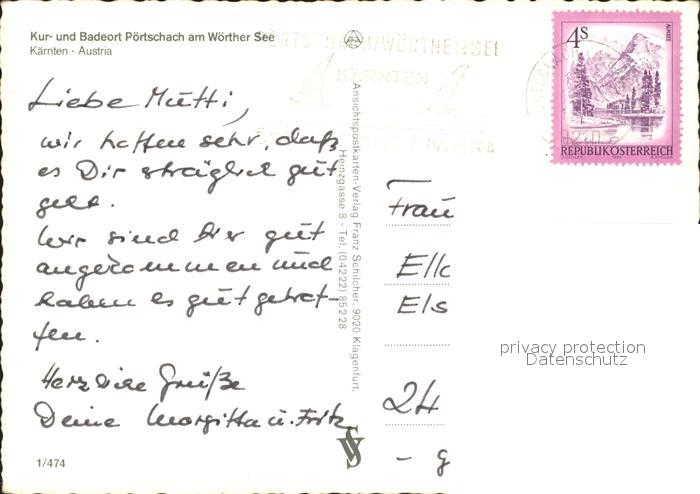 Kur- und Badeort Pörtschach am Wörther See
Kärnten - Austria
PÖRTSCHACH/WÖRTHERSEE
KÄRNTEN
RIVIERA
4s
ALMSEE
REPUBLIK ÖSTERREICH
Liebe Mutti,
wir hoffen sehr, daß
es Dir erträglich gut
geht.
Wir sind hier gut
angekommen und
haben es gut getrof-
fen.
Herzliche Grüße
Deine Margitta u. Fritz
Ansichtspostkarten-Verlag Franz Schilcher, 9020 Klagenfurt,
Heinzgasse 8 - Tel. (04222) 85228
Frau
Ella
Els
24
privacy protection
Datenschutz
1/474